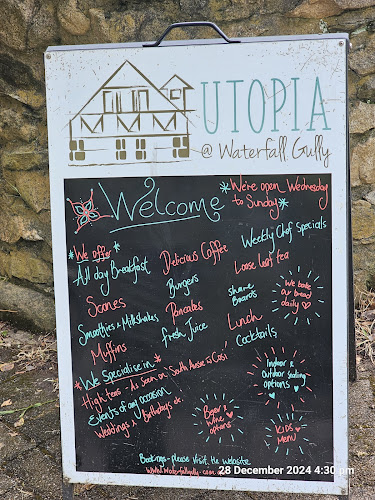 UTOPIA
@ Waterfall Gully
Welcome
*We're open Wednesday
to Sunday*
*We offer*
All day Breakfast
Scones
Smoothies & Milkshakes
Muffins
Delicious Coffee
Burgers
Pancakes
Fresh Juice
Weekly Chef Specials
Loose leaf tea
Share
Boards
Lunch
Cocktails
We bake
our bread
daily
*We Specialise in*
High teas - As seen on South Aussie & Cosi
Events of any occasion
Weddings & Birthdays etc
Beer &
wine
options
Indoor &
Outdoor seating
options
KIDS
Menu
Bookings - please visit the website
www.waterfallgully.com.au
28 December 2024 4:30 pm